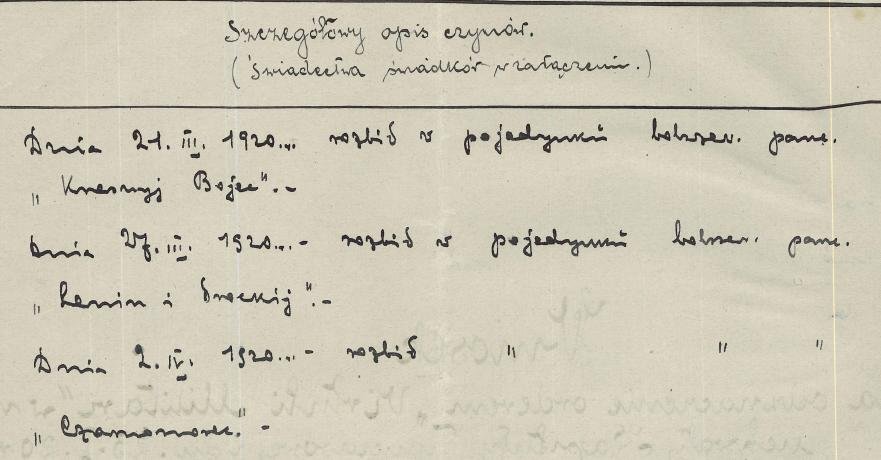 Szczegółowy opis czynów.
(Świadectwa świadków w załączeniu.)
Dnia 21. III. 1920... rozbił w pojedynku bolszew. panc.
„Krasnyj Bojec".-
Dnia 27. III. 1920...- rozbił w pojedynku bolszew. panc.
„Lenin i Trockij".-
Dnia 2. IV. 1920...- rozbił " " "
„Czarnomorec."-